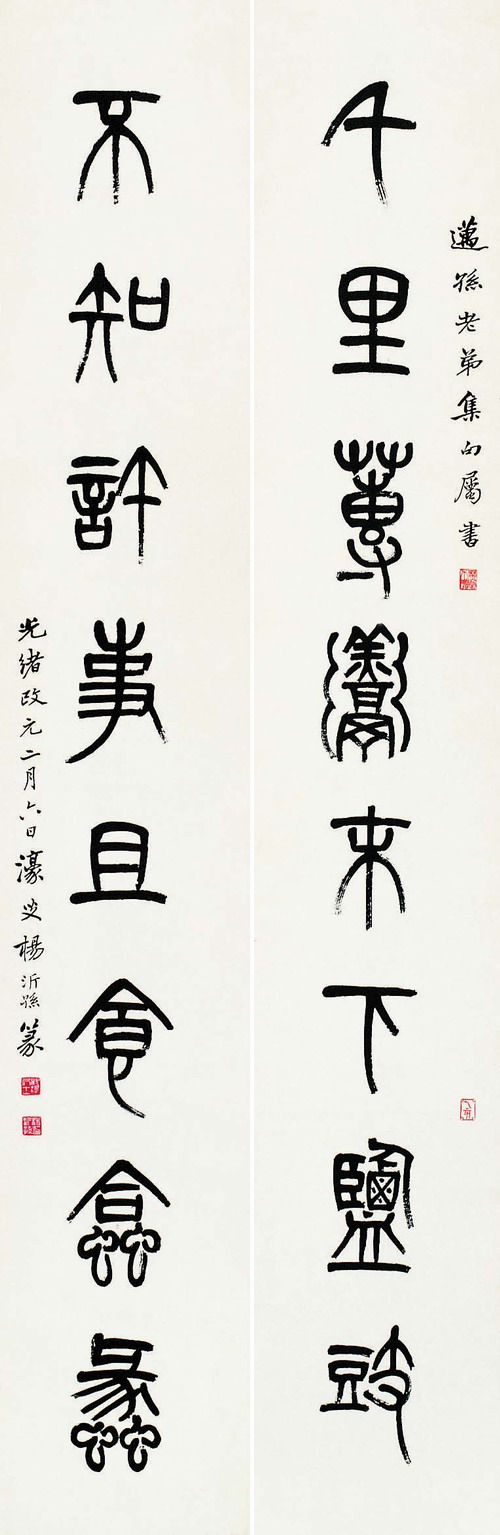 邁孫老弟集句屬書
千里蓴羹末下鹽豉
不知許事且食蛤蠡
光緒改元二月六日濠叟楊沂孫篆